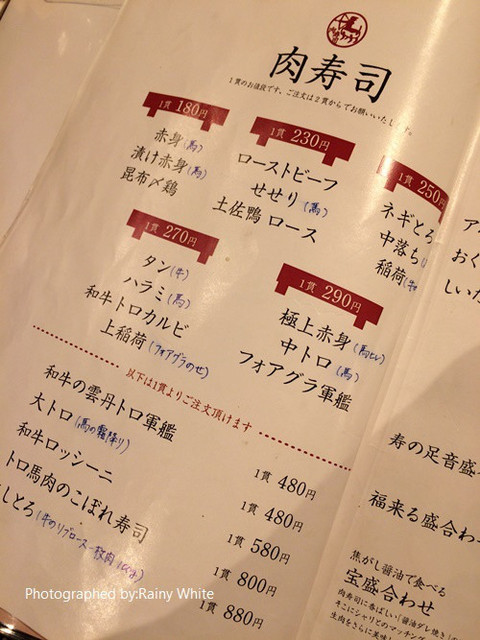 肉寿司
1貫のお値段です、ご注文は2貫からでお願いいたします。
1貫 180円
赤身(馬)
漬け赤身(馬)
昆布〆鶏
1貫 230円
ローストビーフ
せせり(馬)
土佐鴨 ロース
1貫 250円
ネギとろ
中落ち
稲荷(牛
1貫 270円
タン(牛)
ハラミ(馬)
和牛トロカルビ
上稲荷(フォアグラのせ)
1貫 290円
極上赤身(馬ヒレ)
中トロ(馬)
フォアグラ軍艦
以下は1貫よりご注文頂けます
和牛の雲丹トロ軍艦 1貫 480円
大トロ(馬の霜降り) 1貫 480円
和牛ロッシーニ 1貫 580円
トロ馬肉のこぼれ寿司 1貫 800円
しとろ(牛のリブロース一枚肉 1貫 880円
ア
おく
しいた
寿の足音盛
福来る盛合わ
焦がし醤油で食べる
宝盛合わせ
肉寿司に香ばしい「醤油ダレ焼き」の
そこにシャリとのマッチング
生肉をさらに美味し
Photographed by:Rainy White